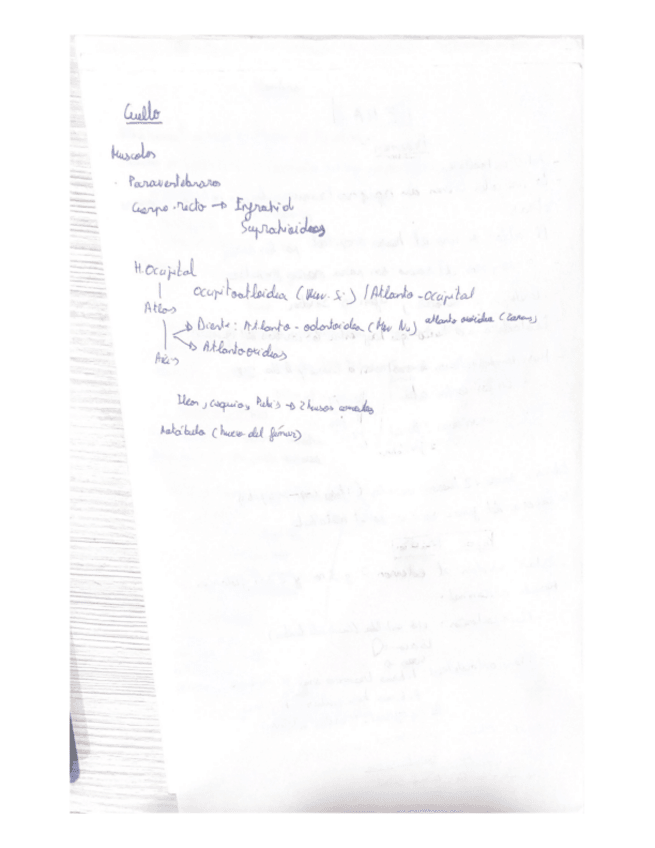 Cuello
Musculos
· Paravertebrares
Cuerpo recto → Infrahiod
Suprahioideos
H. Occipital
Occipitoatloidea (Mov. Si) / Atlanto-occipital
Atlas
Diente: Atlanto-odontoidea (Mov No) atlanto axoidea (
Atlantoaxoideas
Axis
Ileon, isquion, Pubis → 2 huesos
(hueco del fémur)